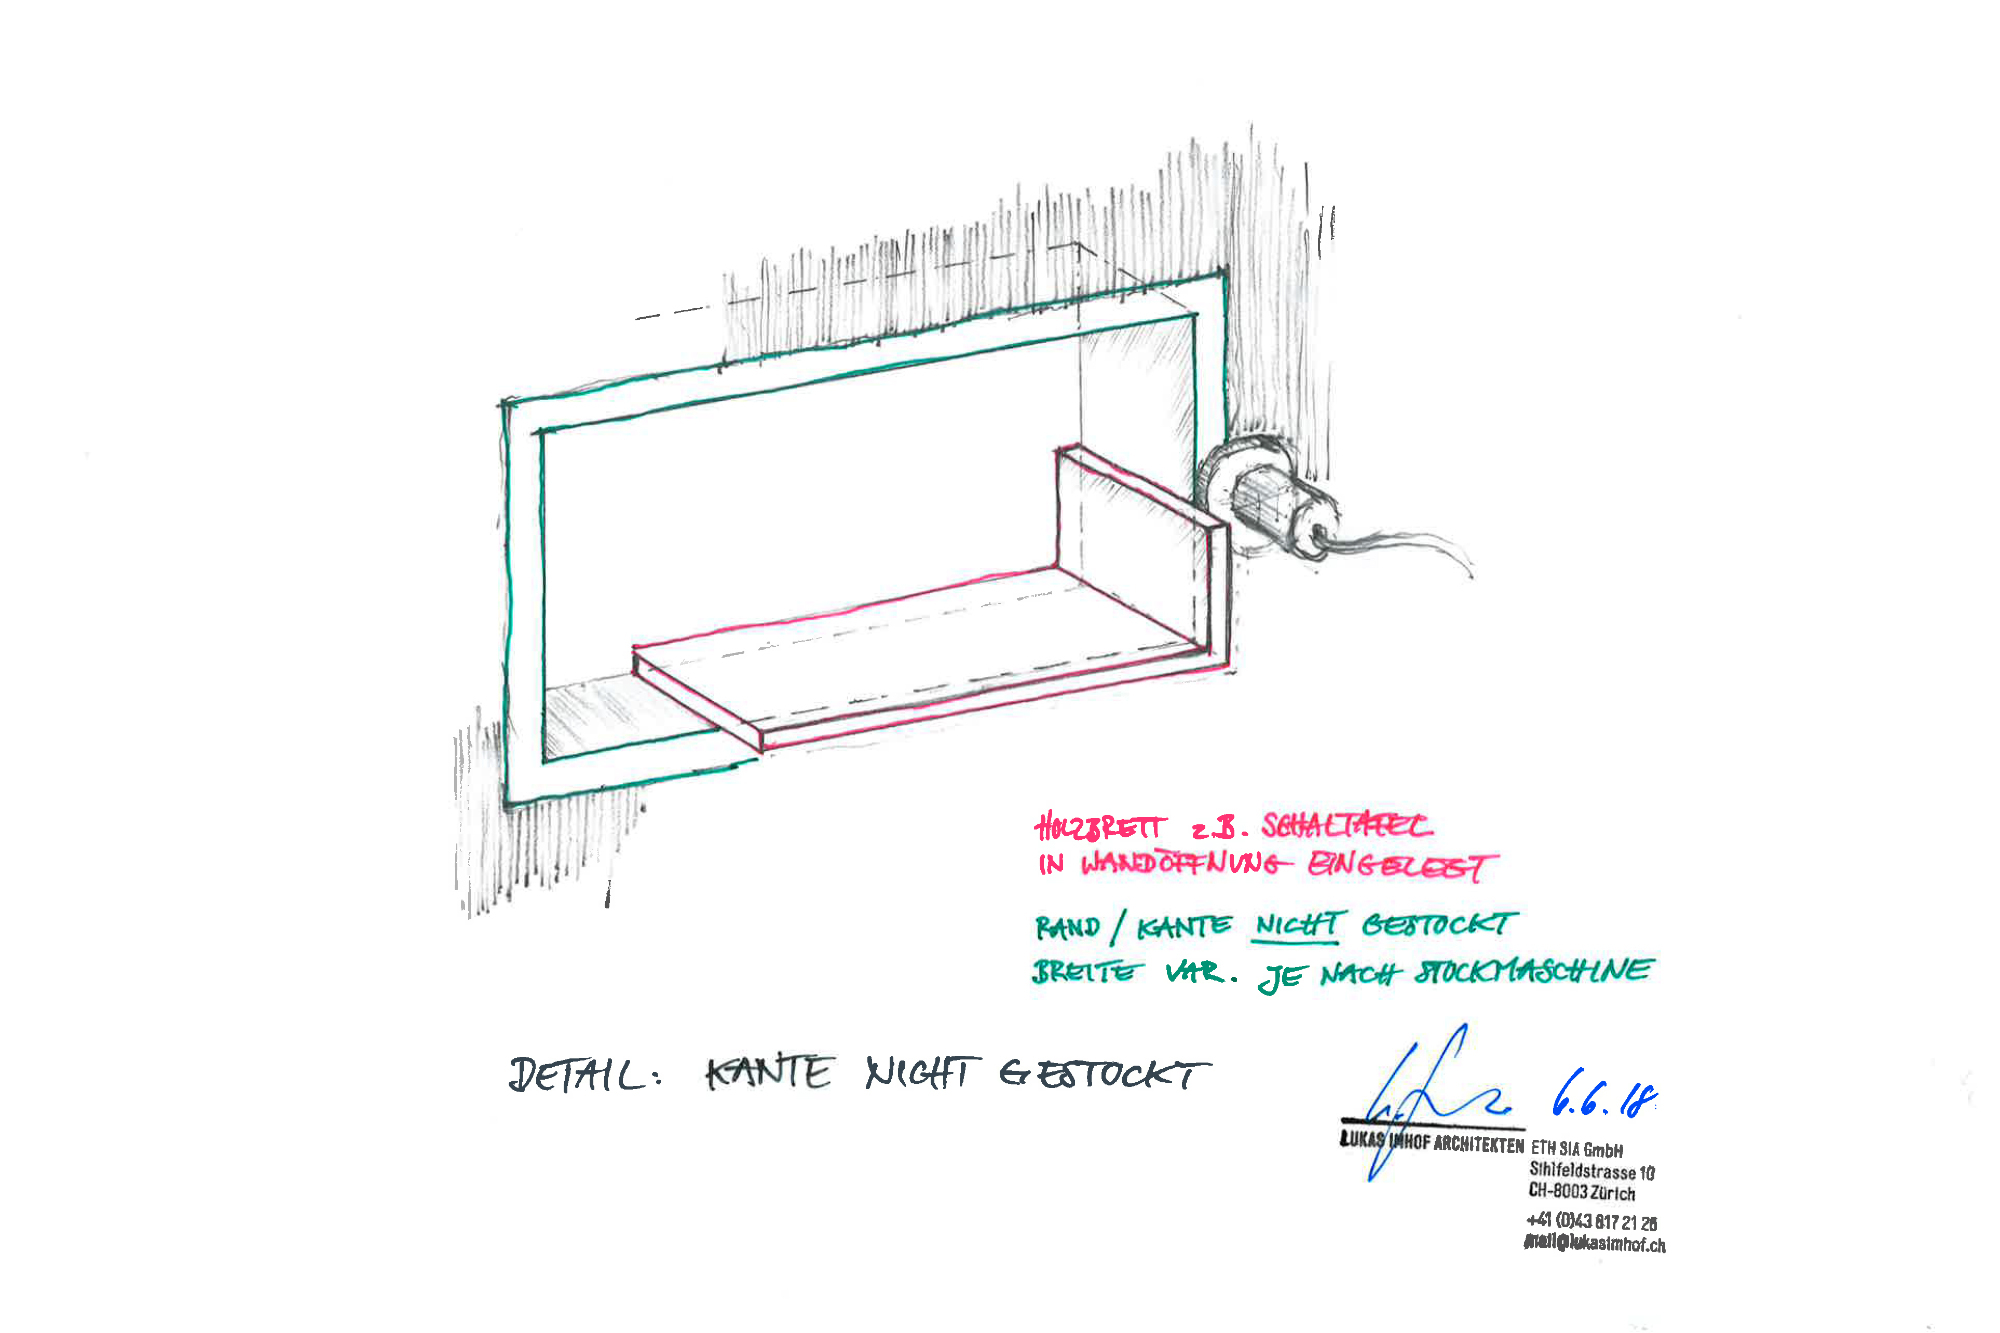 HOLZBRETT z.B. SCHALTAFEL
IN WANDÖFFNUNG EINGELEGT
RAND / KANTE NICHT GESTOCKT
BREITE VAR. JE NACH STOCKMASCHINE
DETAIL: KANTE NICHT GESTOCKT
6.6.18
LUKAS IMHOF ARCHITEKTEN ETH SIA GmbH
Sihlfeldstrasse 10
CH-8003 Zürich
+41 (0)43 817 21 26
mail@lukasimhof.ch